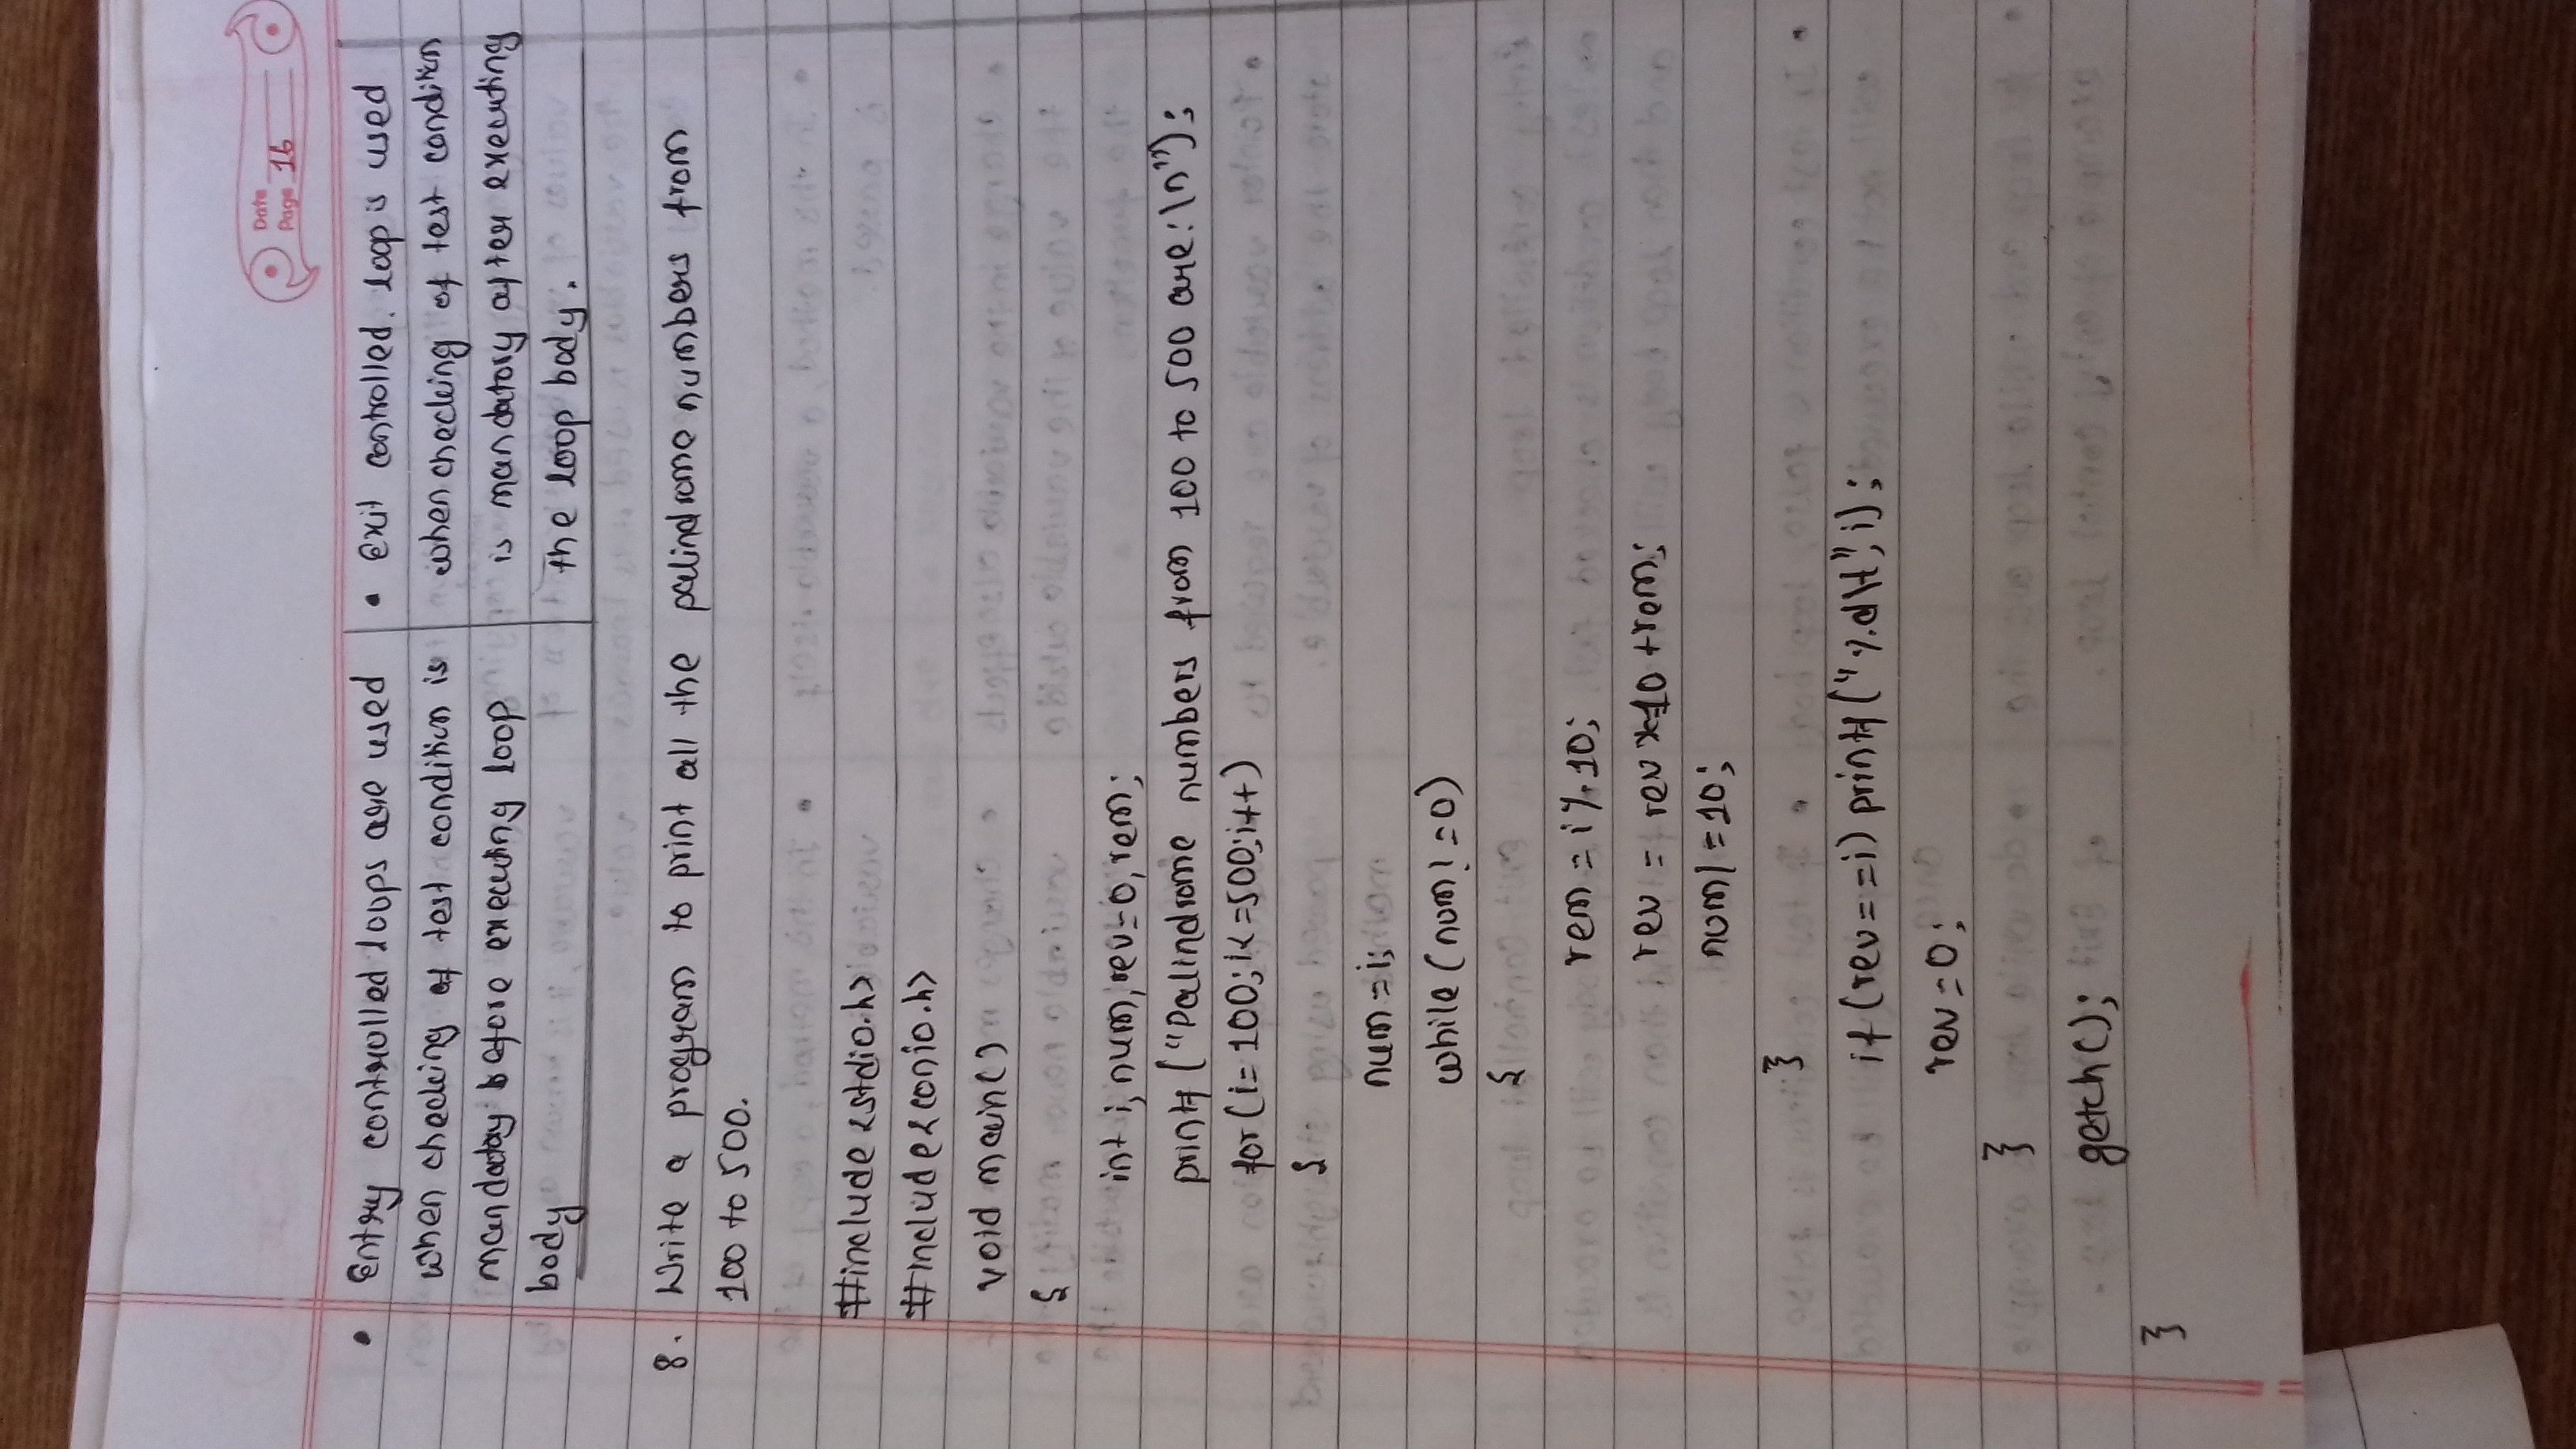 Date
Page 16
• Entry controlled loops are used
when checking of test condition is
mandatory before executing loop
body
• Exit controlled. loop is used
when checking of test condition
is mandatory after executing
the loop body.
8. Write a program to print all the palindrome numbers from
100 to 500.
#include <stdio.h>
#include<conio.h>
void main()
{
int i, num, rev=0, rem;
printf ("Palindrome numbers from 100 to 500 are:\n");
for (i=100; i<=500; i++)
{
num = i;
while (num! =0)
{
rem = i%10;
rev = rev*10 +rem;
num/=10;
}
if (rev==i) printf ("%d\t", i);
rev=0;
}
getch();
}